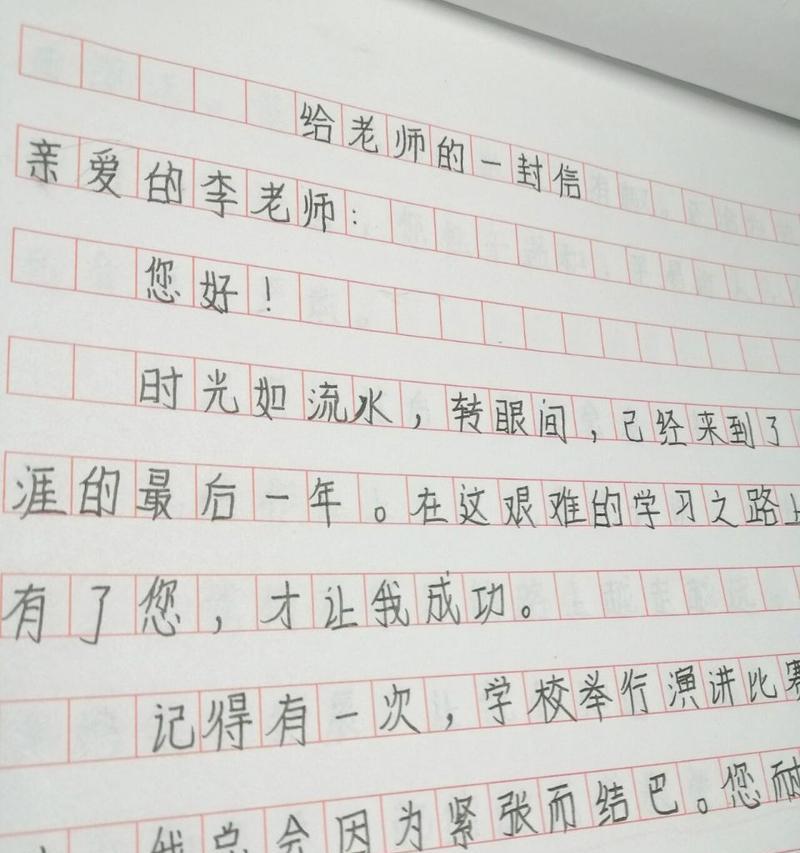 给老师的一封信
亲爱的李老师：
您好！
时光如流水，转眼间，已经来到了
涯的最后一年。在这艰难的学习之路上
有了您，才让我成功。
记得有一次，学校举行演讲比赛
我总会因为紧张而结巴。您耐